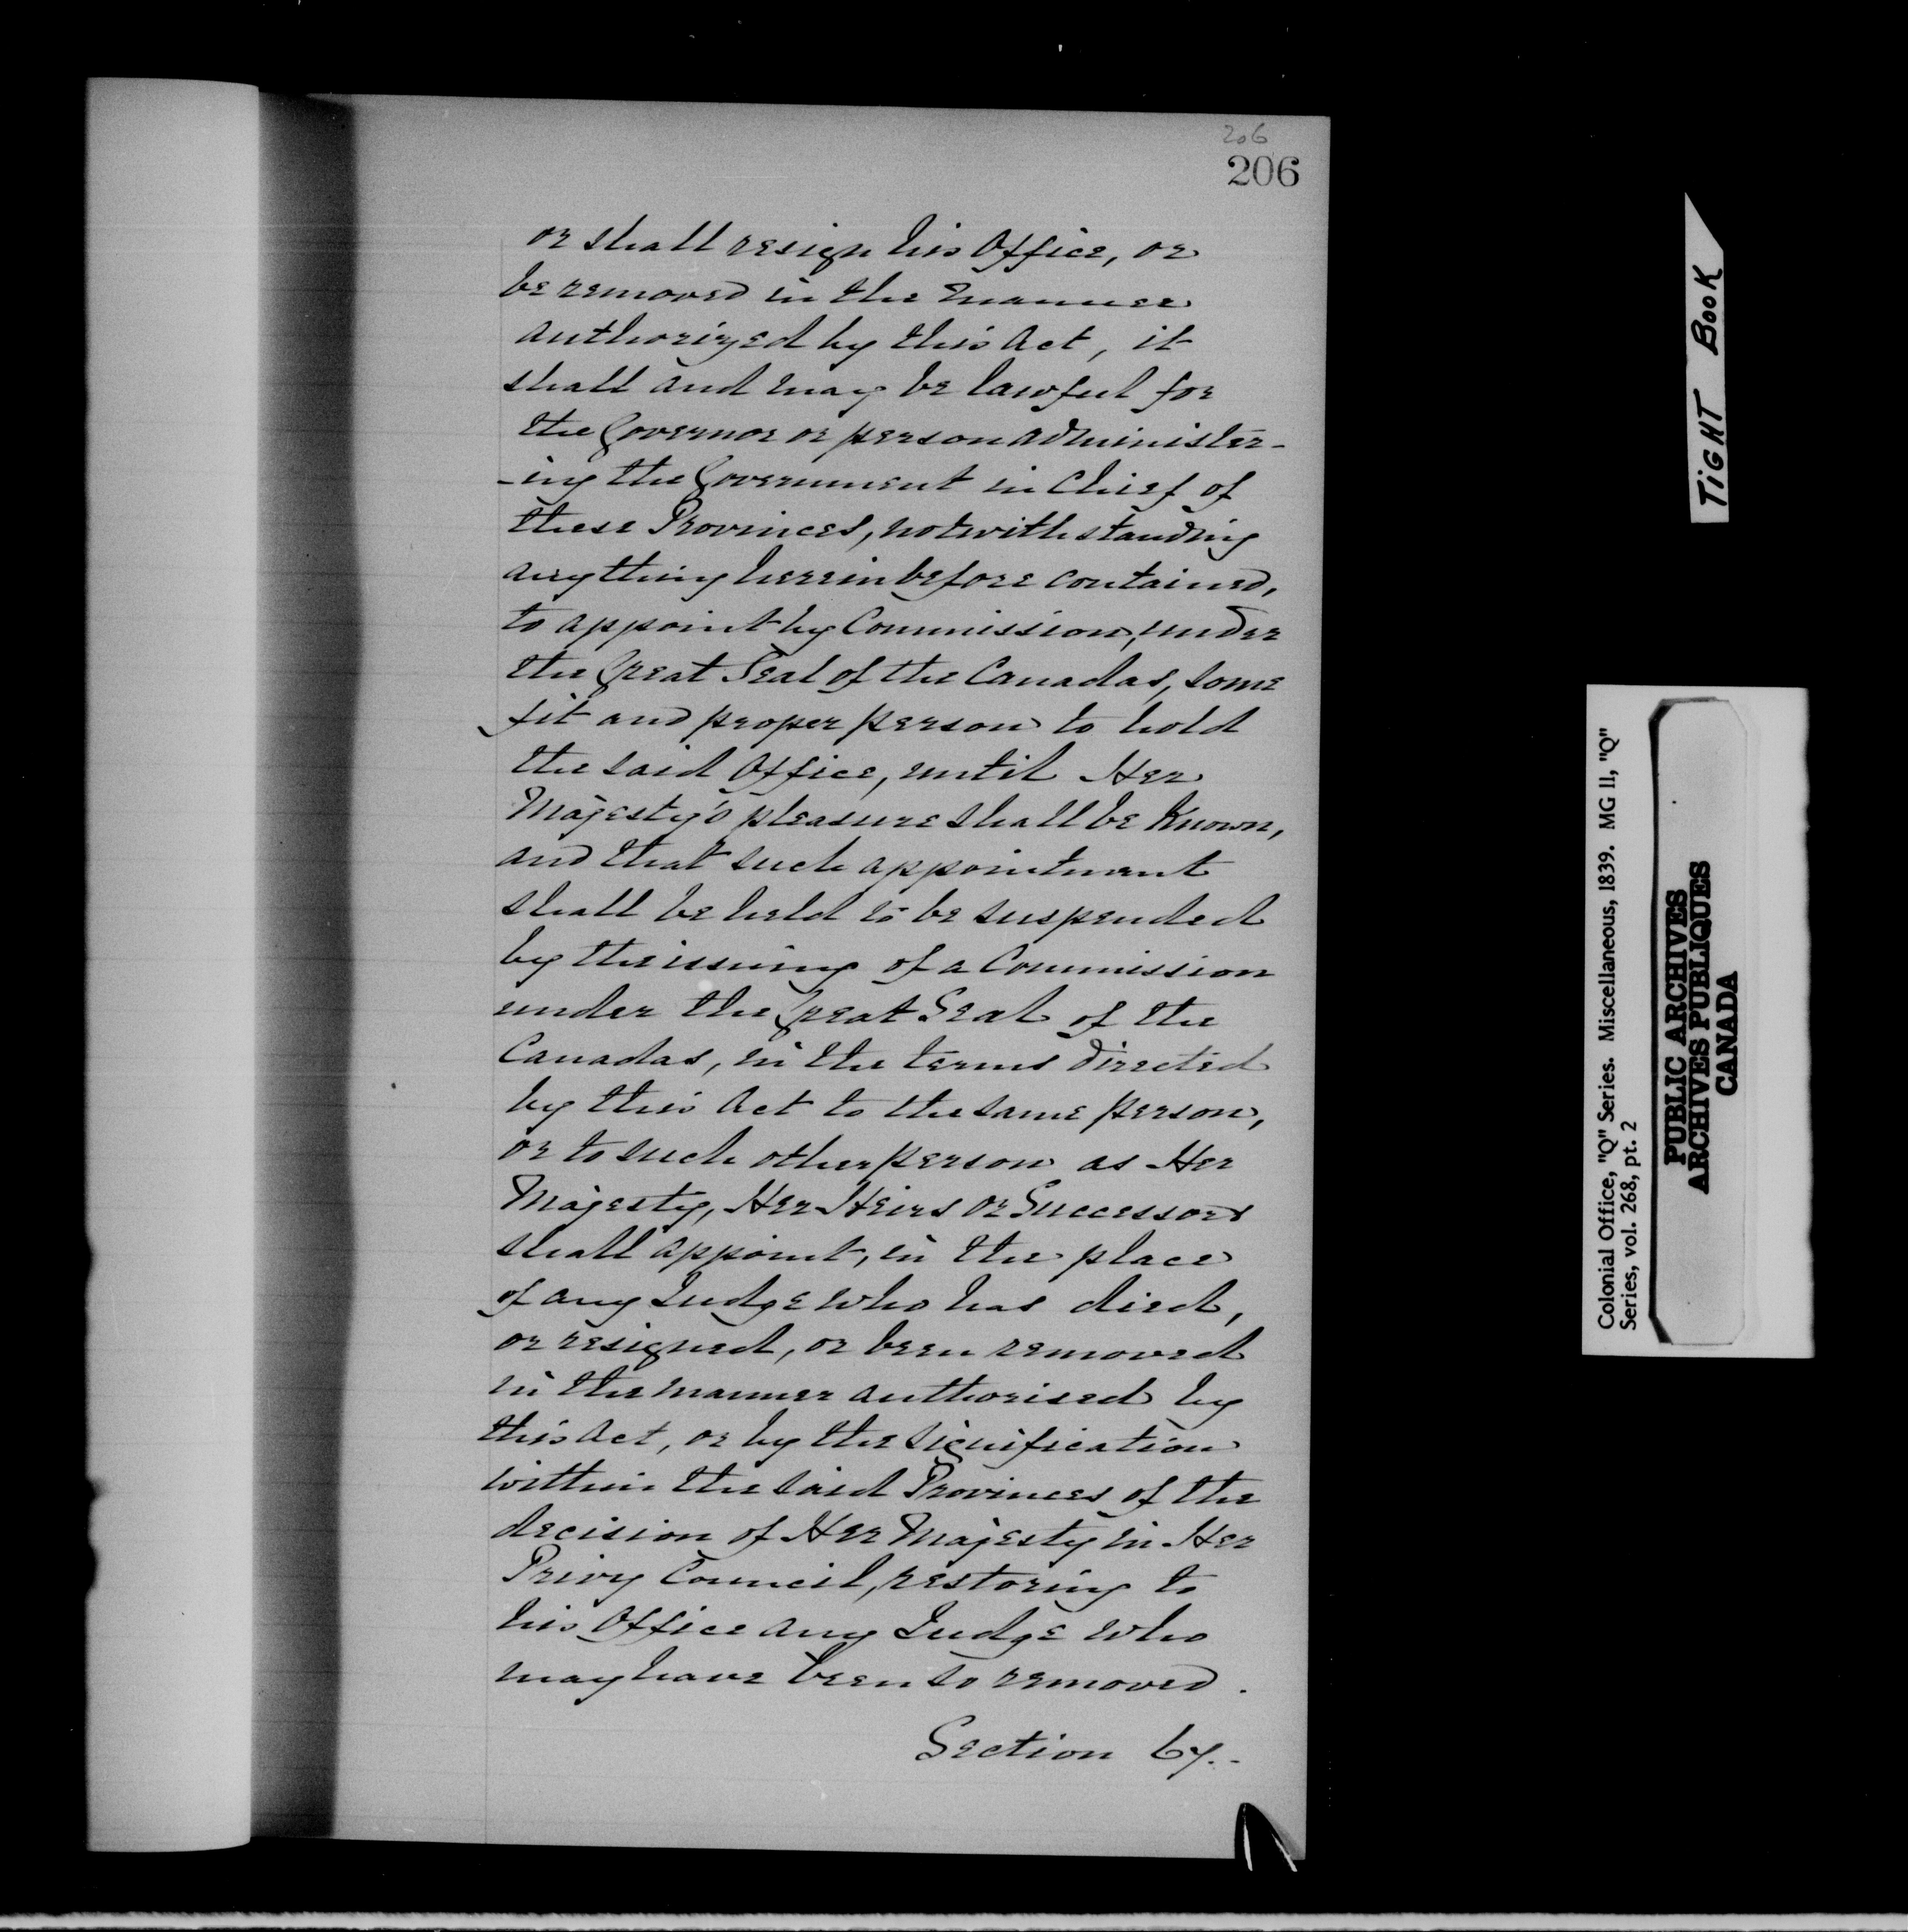 206
206
or shall resign his Office, or
be removed in the manner
authorized by this Act, it
shall and may be lawful for
the Governor or person administer-
-ing the Government in Chief of
these Provinces, notwithstanding
anything hereinbefore contained,
to appoint by Commission, under
the Great Seal of the Canadas, some
fit and proper person to hold
the said Office, until Her
Majesty's pleasure shall be known,
and that such appointment
shall be held to be suspended
by the issuing of a Commission
under the Great Seal of the
Canadas, in the terms directed
by this Act to the same person,
or to such other person as Her
Majesty, Her Heirs or Successors
shall appoint, in the place
of any Judge who has died,
or resigned, or been removed
in the manner authorised by
this Act, or by the signification
within the said Provinces of the
decision of Her Majesty in Her
Privy Council, restoring to
his Office any Judge who
may have been so removed.
Section 67.-
TIGHT BOOK
Colonial Office, "Q" Series. Miscellaneous, 1839. MG 11, "Q"
Series, vol. 268, pt. 2
PUBLIC ARCHIVES
ARCHIVES PUBLIQUES
CANADA